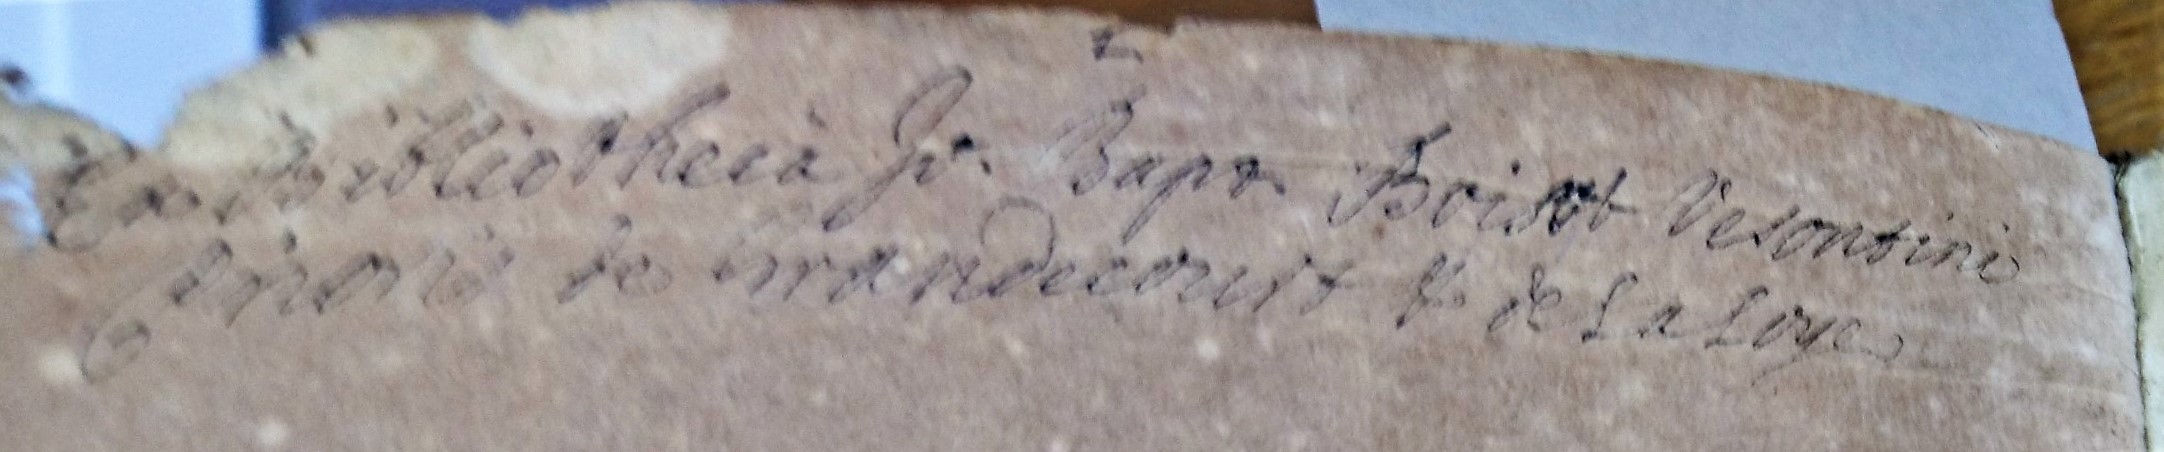 Ex Bibliothecâ Jo. Bapt. Boisot Vesontini
prioris de Grandecourt & de La Loye